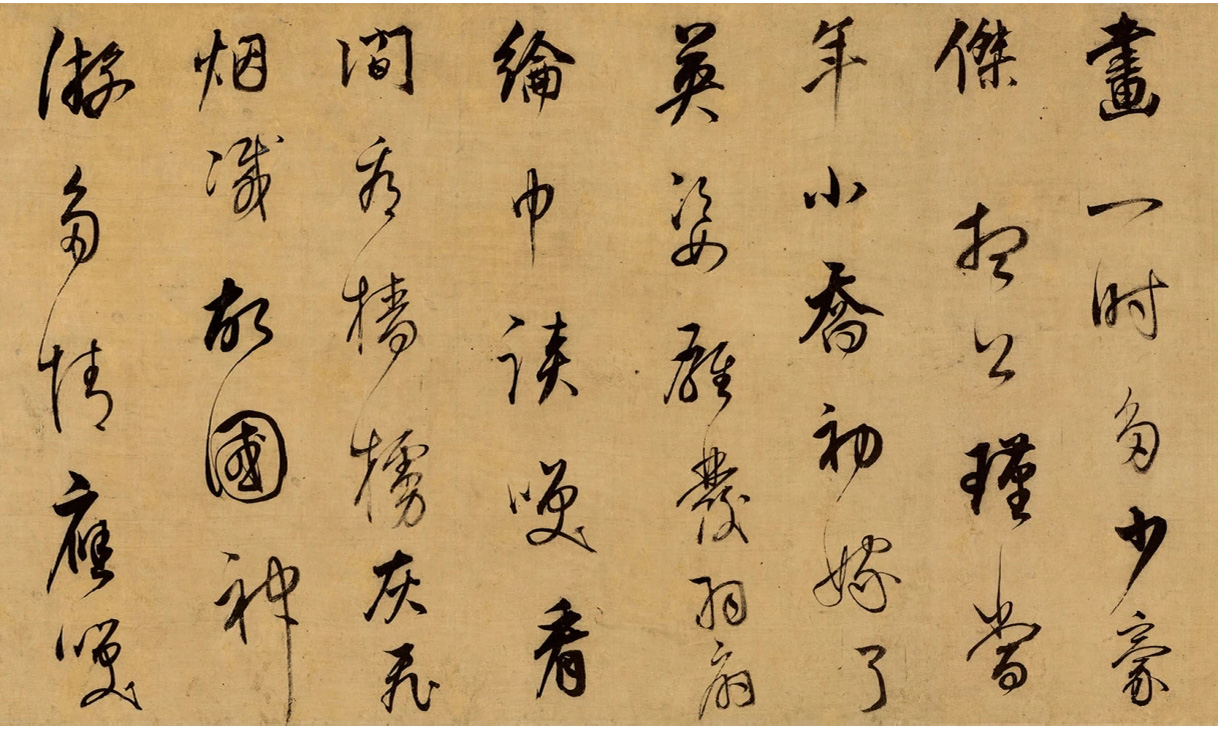 畫一时多少豪
傑想公瑾當
年小喬初嫁了
英姿雄發羽扇
綸巾談咲看
間檣櫓灰飛
烟滅故國神
游多情應咲